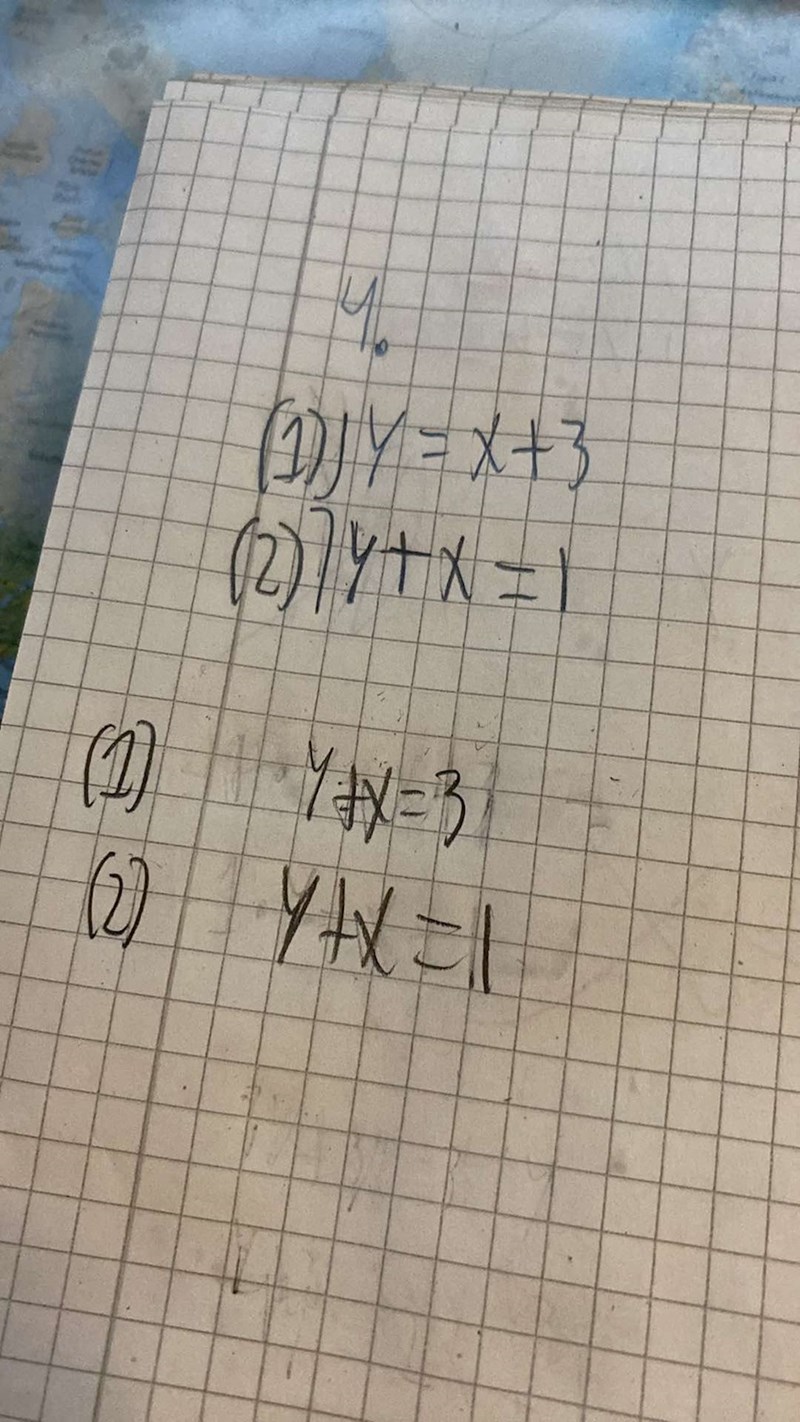 4.
(1) y = x + 3
(2) y + x = 1
(1) y + x = 3
(2) y + x = 1